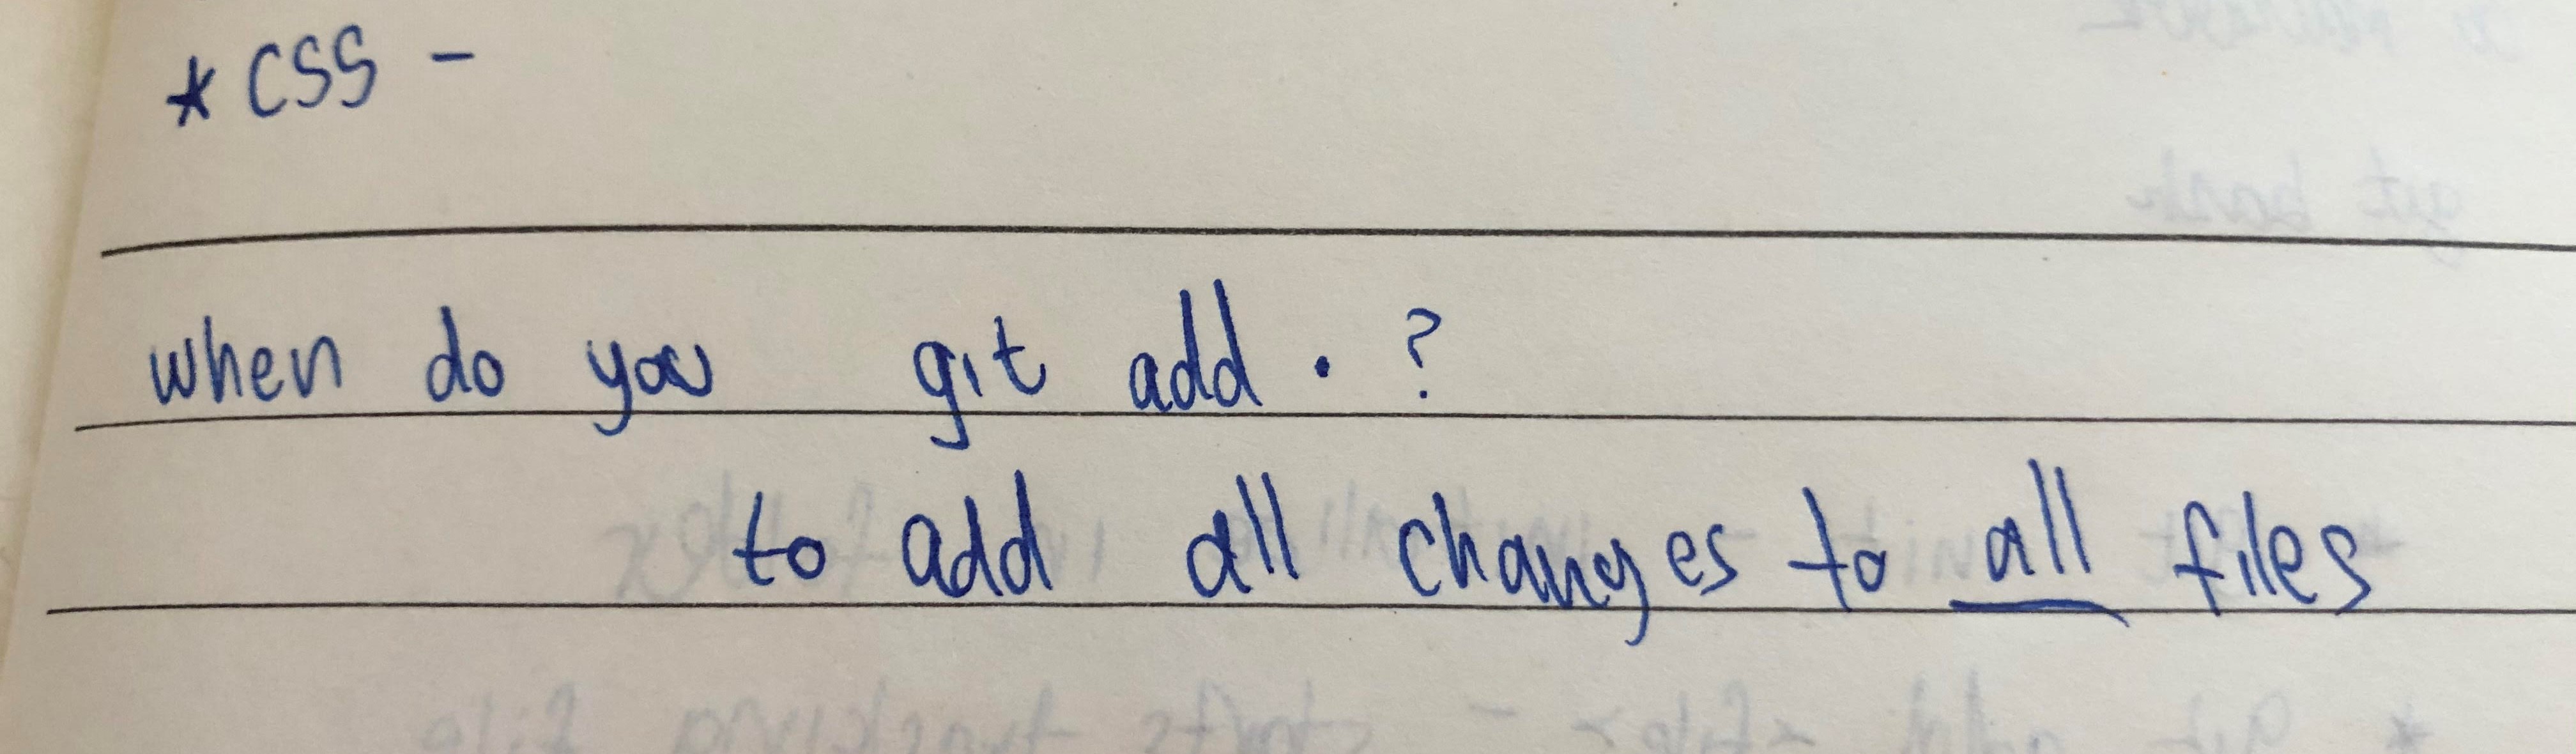 * CSS -
when do you git add . ?
to add all changes to all files